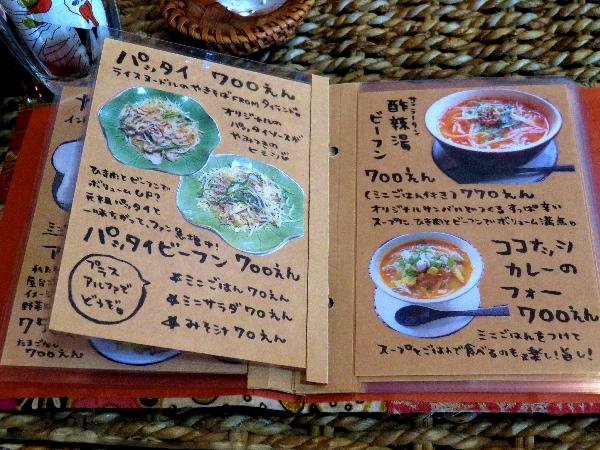 パッタイ 700えん
ライスヌードルのやきそばFROMタイランド。
オリジナルの
パッタイソースが
やみつきの
ヒミツ
ひき肉とビーフンで
ボリュームUP?
元祖パッタイと
一味ちがって、ファン急増中!
パッタイビーフン 700えん
プラス
アルファで
どうぞ。
ミニごはん 70えん
ミニサラダ 70えん
みそ汁 70えん
たまごなし
700えん
サンラータン
酸辣湯
ビーフン
700えん
(ミニごはん付き) 770えん
オリジナルサンバルでつくるすっぱ辛い
スープに、ひき肉とビーフンでボリューム満点。
ココナッツ
カレーの
フォー
700えん
ミニごはんをつけて
スープとごはんで食べるのも楽し!旨し!